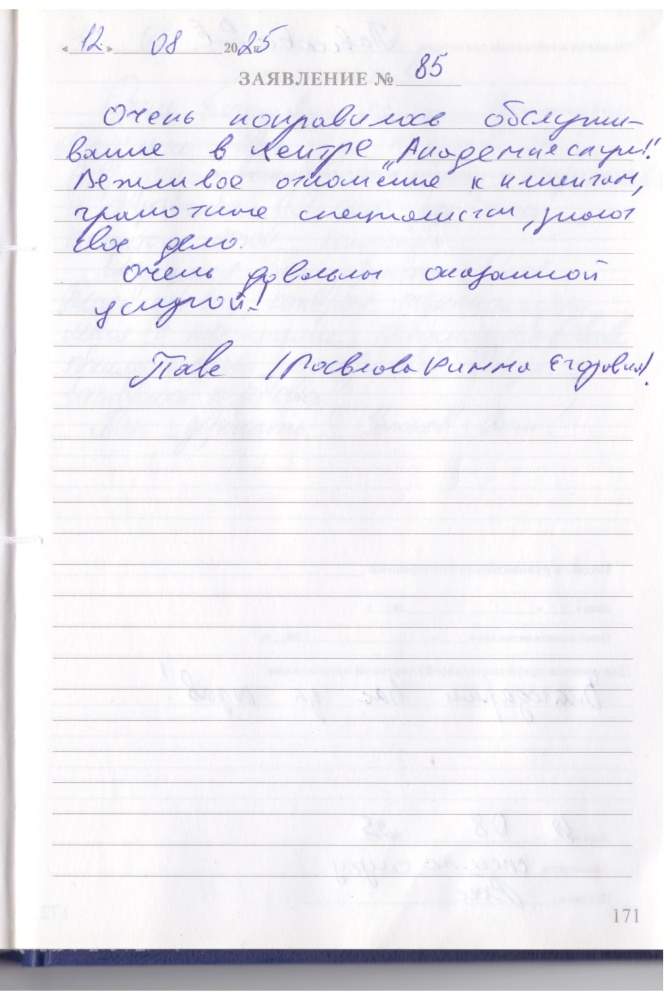 « 12 » 08 2025
ЗАЯВЛЕНИЕ № 85
Очень понравилось обслужи-
вание в центре „Академия слуха!"
Вежливое отношение к клиентам,
грамотные специалисты, знают
свое дело.
Очень довольны оказанной
услугой!
Павл (Павлова Римма Егоровна).
171